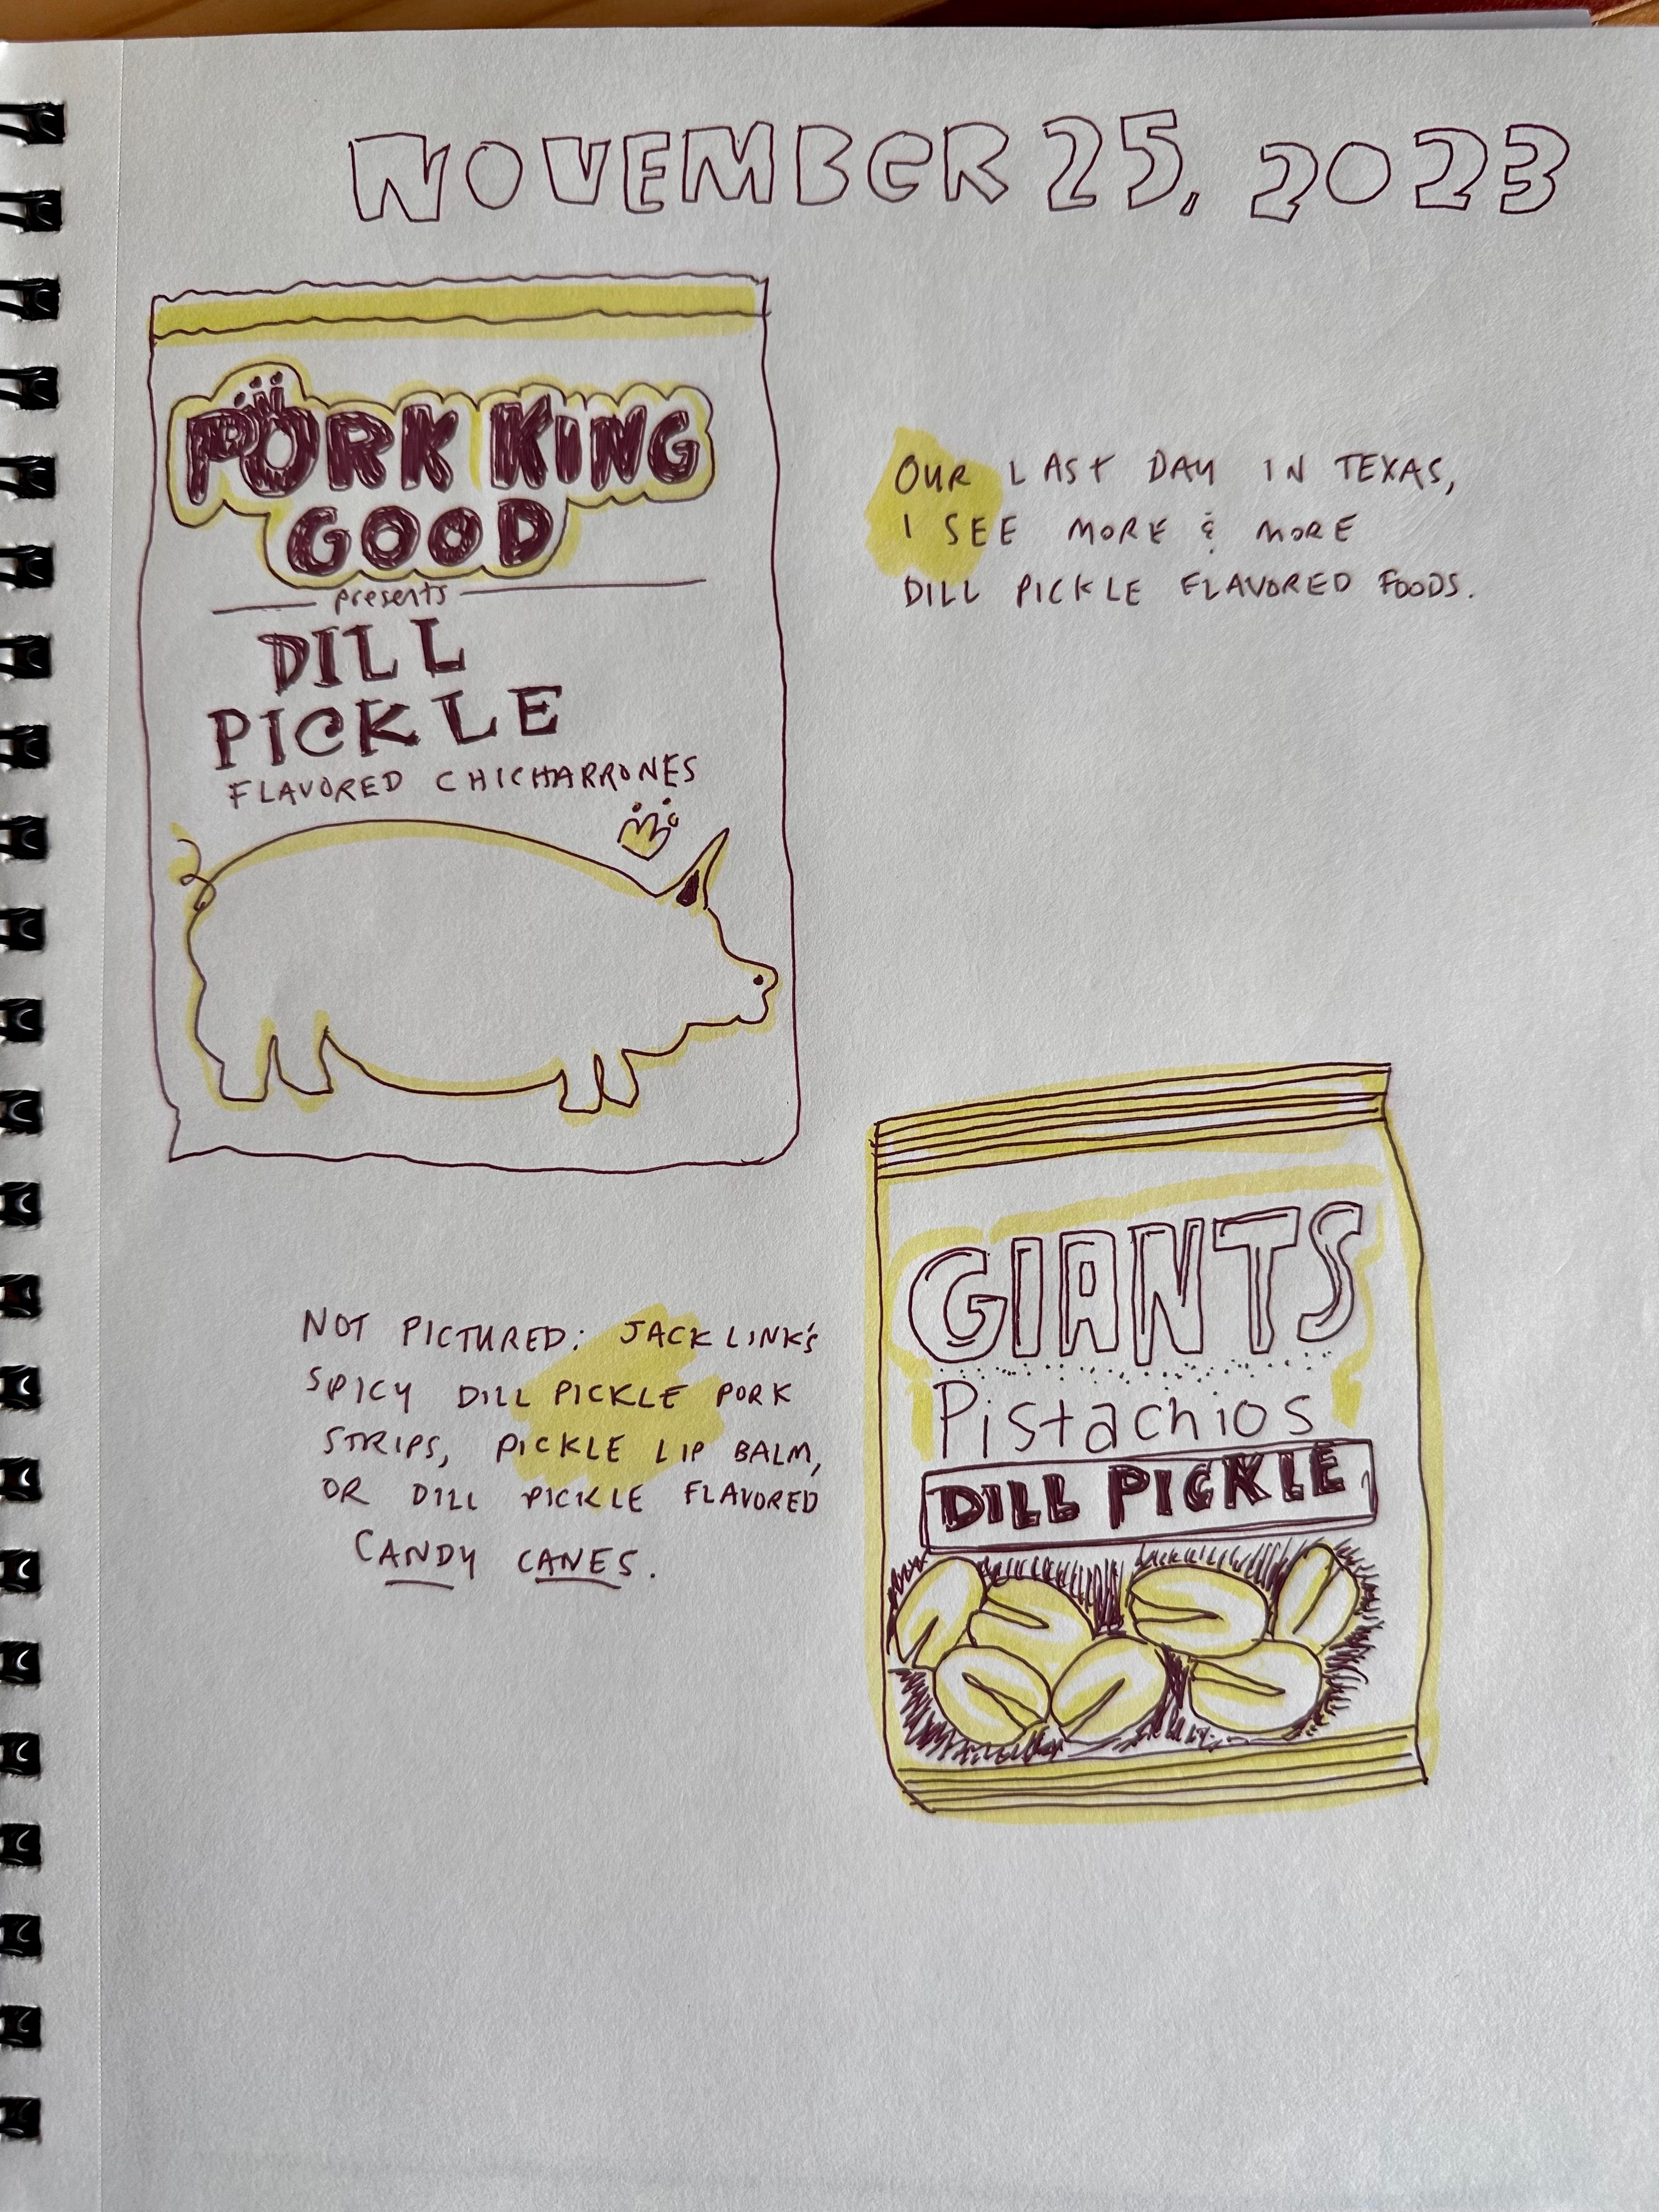 NOVEMBER 25, 2023
PORK KING
GOOD
presents
DILL
PICKLE
FLAVORED CHICHARRONES
OUR LAST DAY IN TEXAS,
I SEE MORE & MORE
DILL PICKLE FLAVORED FOODS.
GIANTS
Pistachios
DILL PICKLE
NOT PICTURED: JACK LINK'S
SPICY DILL PICKLE PORK
STRIPS, PICKLE LIP BALM,
OR DILL PICKLE FLAVORED
CANDY CANES.